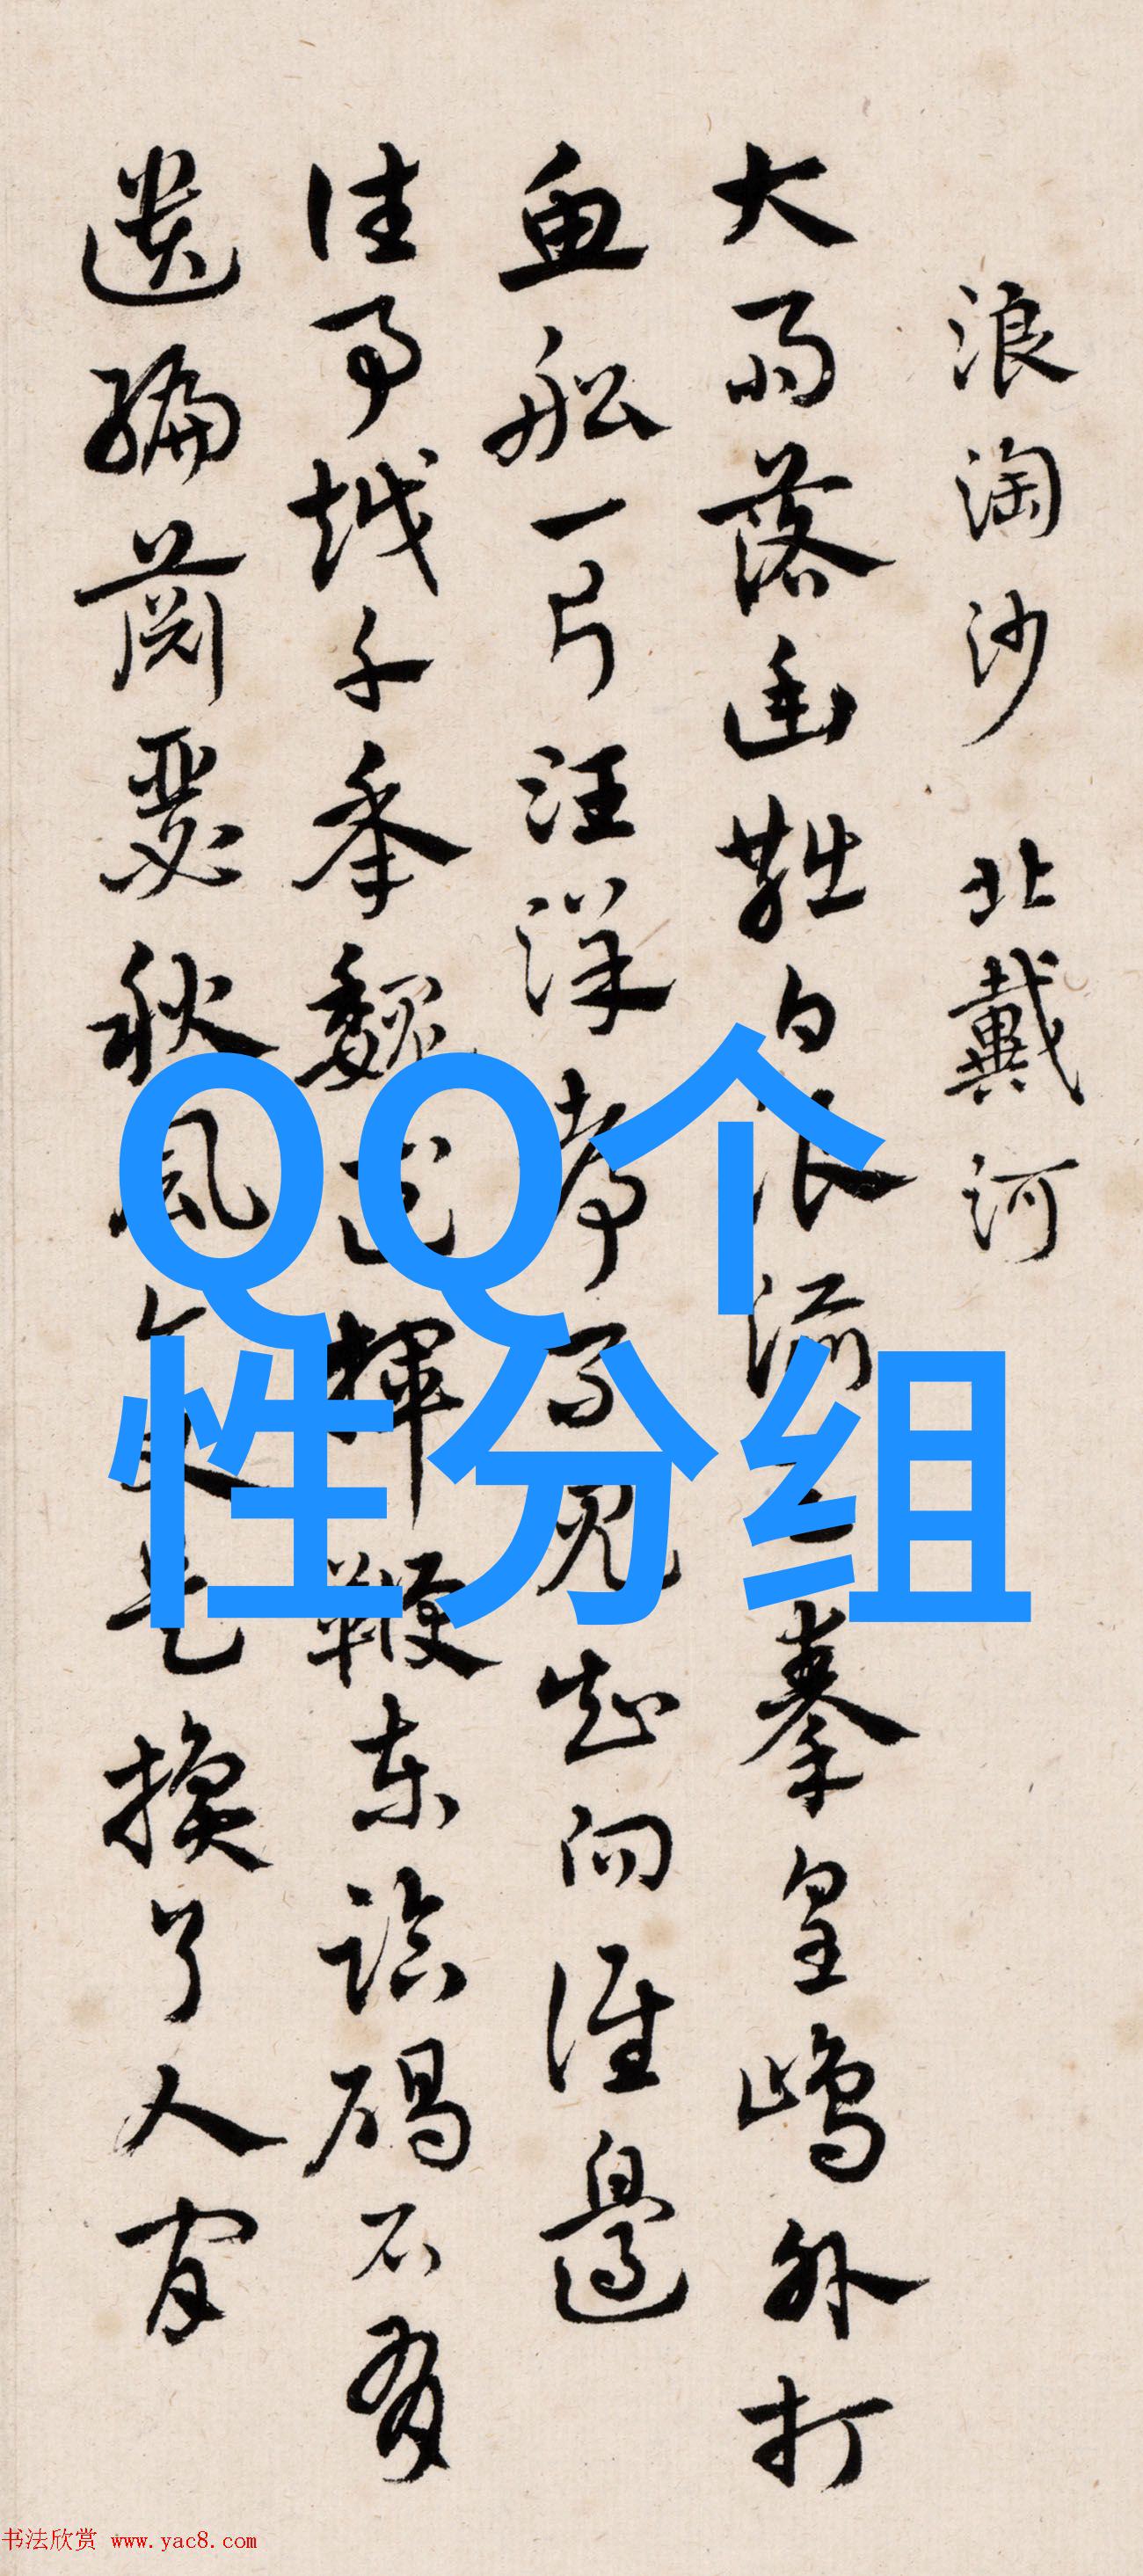 浪淘沙 北戴河
大雨落幽燕白浪滔天秦皇島外打
魚船一片汪洋都不見知向誰邊
往事越千年魏武揮鞭東臨碣石有
遺編蕭瑟秋風今又是換了人間
QQ个
性分组
书法欣赏 www.yac8.com